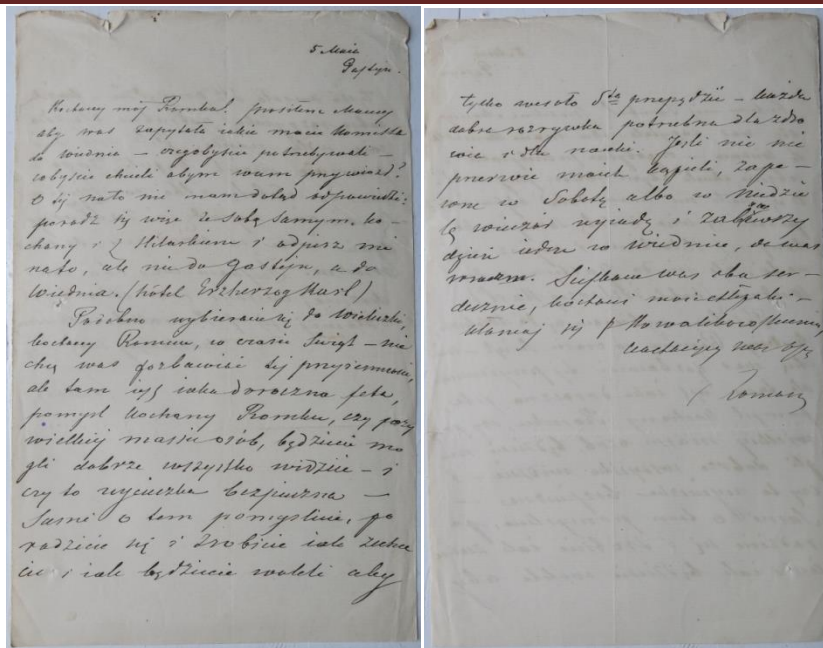 5 Maia
Gastyn.
Kochany mój Romku! prosiłem Mamy
aby was zapytała iakie macie
do Wiednia – czegobyście potrzebywali –
cobyście chcieli abym wam przywiozł?
O tej nato nie mam dotąd odpowiedzi:
poradź się więc ze sobą samym, ko-
chany i z Hilarkiem i odpisz mi
nato, ale nie do Gastejn, a do
Wiednia. (hôtel Erzherzog Karl)
Podobno wybieracie się do Wieliczki,
kochany Romku, w czasie Świąt – nie
chcę was pozbawiać tej przyiemności,
ale tam iest iakaś doroczna feta,
pomyśl kochany Romku, czy przy
wielkiej massie osób, będziecie mo
gli dobrze wszystko widzieć – i
czy to wycieczka bezpieczna –
Sami o tem pomyślcie, po
radźcie się i zróbcie iak zechce
cie i iak będziecie woleli aby
tylko wesoło Sta przepędzić – każda
dobra rozrywka potrzebna dla zdro
wia i dla nauki. Jeśli nic nie
przerwie moich kąpieli, zape
wne w Sobotę albo w Niedzie
lę wieczór wyiadę i
dzień iedm w Wiedniu, do was
wracam. Sciskam was oba ser-
decznie, kochani moi
kłaniaj się P
kochaiący was oyc
Roman